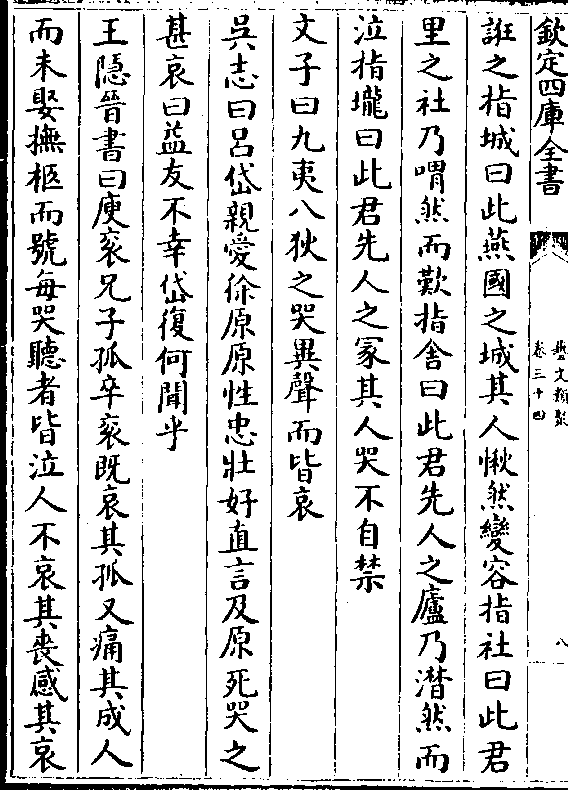 欽定四庫全書
藝文類聚
卷三十四
八
誑之指城曰此燕國之城其人愀然變容指社曰此君
里之社乃喟然而歎指舍曰此君先人之廬乃潸然而
泣指壠曰此君先人之冢其人哭不自禁
文子曰九夷八狄之哭異聲而皆哀
吳志曰呂岱親愛徐原原性忠壯好直言及原死哭之
甚哀曰益友不幸岱復何聞乎
王隠晉書曰庾衮兄子孤卒衮既哀其孤又痛其成人
而未娶撫柩而號每哭聽者皆泣人不哀其喪感其哀